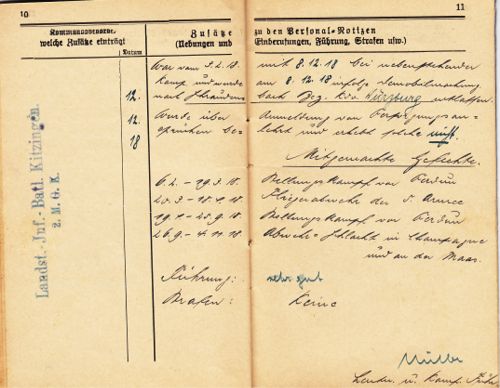 10
11
Kommandobehörde,
welche Zusätze einträgt
Datum
Zusätze zu den Personal-Notizen
(Uebungen und Einberufungen, Führung, Strafen usw.)
Landst.-Inf.-Batl. Kitzingen.
2. M. G. K.
12.
12
18
War vom 5.2.18. mit 8.12.18 bei nebenstehender
Komp. und wurde am 8.12.18 infolge Demobilmachung
nach Bez. Kdo Würzburg entlassen
Wurde über Anmeldung von
und erhebt solche nicht.
Mitgemachte Gefechte.
6.2. – 19.3.18. Stellungskampf vor Verdun
20.3 – 18.9.18. Fliegerabwehr der 5. Armee
19.9 – 25.9.18. Stellungskampf vor Verdun
26.9. – 4.11.18. Abwehr-Schlacht in Champagne
und an der Maas.
Führung: sehr gut
Strafen: Keine
Leutn. u. Komp. Führer